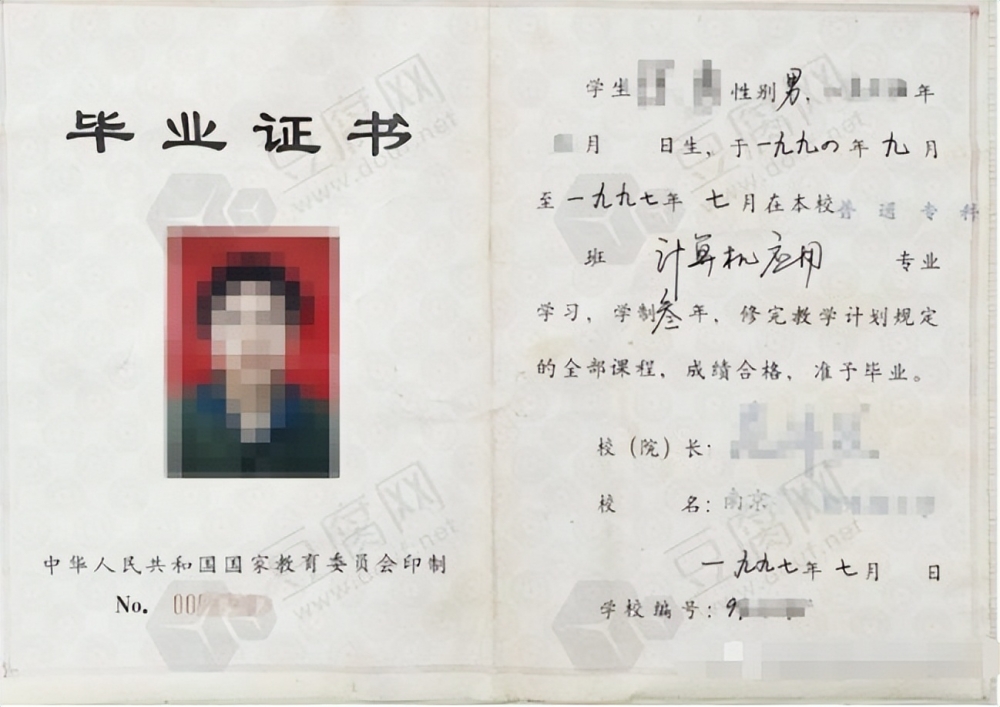 毕业证书
中华人民共和国国家教育委员会印制
No. 00
学生 性别男, 年
月 日生，于一九九四年九月
至一九九七年 七月在本校普通专科
班 计算机应用 专业
学习，学制叁年，修完教学计划规定
的全部课程，成绩合格，准予毕业。
校（院）长：
校 名：南京
一九九七年七月 日
学校编号：9
豆腐网
www.doufu.net